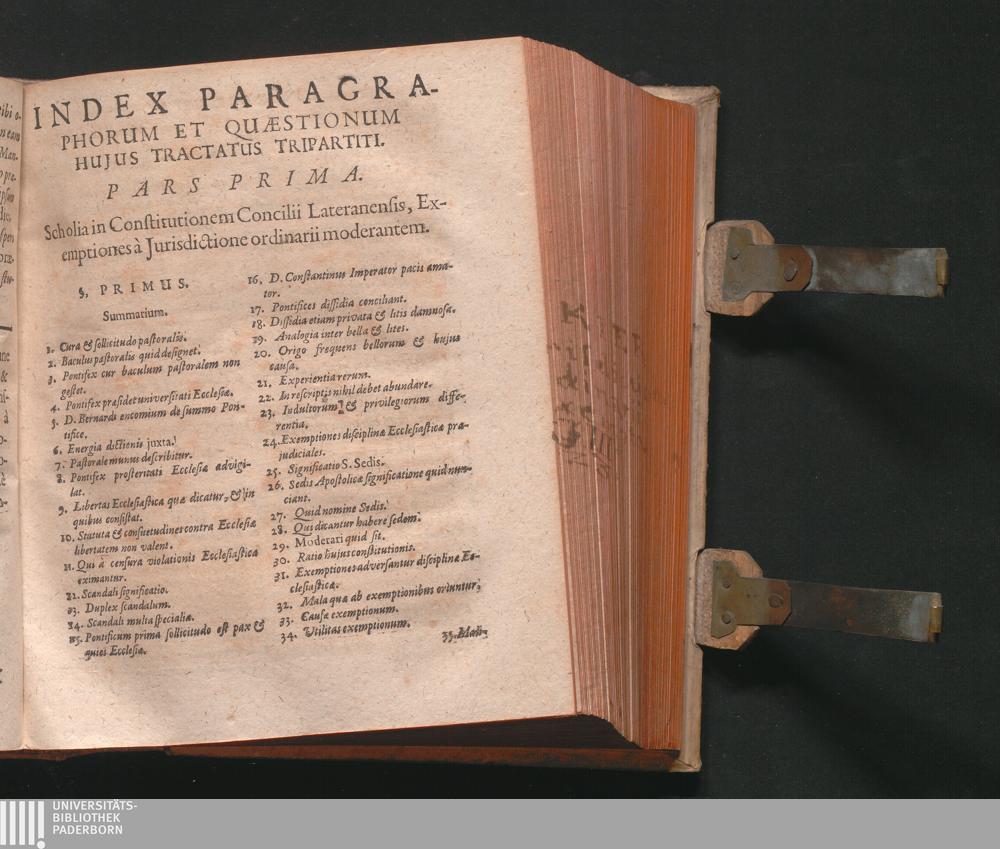 INDEX PARAGRA-
PHORUM ET QUÆSTIONUM
HUJUS TRACTATUS TRIPARTITI.
PARS PRIMA.
Scholia in Constitutionem Concilii Lateranensis, Ex-
emptiones à Jurisdictione ordinarii moderantem.
§. PRIMUS.
Summarium.
1. Cura & sollicitudo pastoralis.
2. Baculus pastoralis quid designet.
3. Pontifex cur baculum pastoralem non
gestet.
4. Pontifex præsidet universitati Ecclesiæ.
5. D. Bernardi encomium de summo Pon-
tifice.
6. Energia dictionis juxta.
7. Pastorale munus describitur.
8. Pontifex prosteritati Ecclesiæ advigi-
lat.
9. Libertas Ecclesiastica quæ dicatur, & in
quibus consistat.
10. Statuta & consuetudines contra Ecclesiæ
libertatem non valent.
11. Qui à censura violationis Ecclesiastica
eximantur.
12. Scandali significatio.
13. Duplex scandalum.
14. Scandali multa specialia.
15. Pontificum prima sollicitudo est pax &
quies Ecclesiæ.
16. D. Constantinus Imperator pacis ama-
tor.
17. Pontifices dissidia conciliant.
18. Dissidia etiam privata & litis damnosa.
19. Analogia inter bella & lites.
20. Origo frequens bellorum & hujus
causa.
21. Experientia rerum.
22. In rescriptis nihil debet abundare.
23. Indultorum & privilegiorum diffe-
rentia.
24. Exemptiones disciplinæ Ecclesiasticæ præ-
judiciales.
25. Significatio S. Sedis.
26. Sedis Apostolicæ significatione quid nun-
ciant.
27. Quid nomine Sedis.
28. Qui dicantur habere sedem.
29. Moderari quid sit.
30. Ratio hujus constitutionis.
31. Exemptiones adversantur disciplinæ Ec-
clesiasticæ.
32. Mala quæ ab exemptionibus oriuntur,
33. Causæ exemptionum.
34. Utilitas exemptionum.
35. Man-
UNIVERSITÄTS-
BIBLIOTHEK
PADERBORN